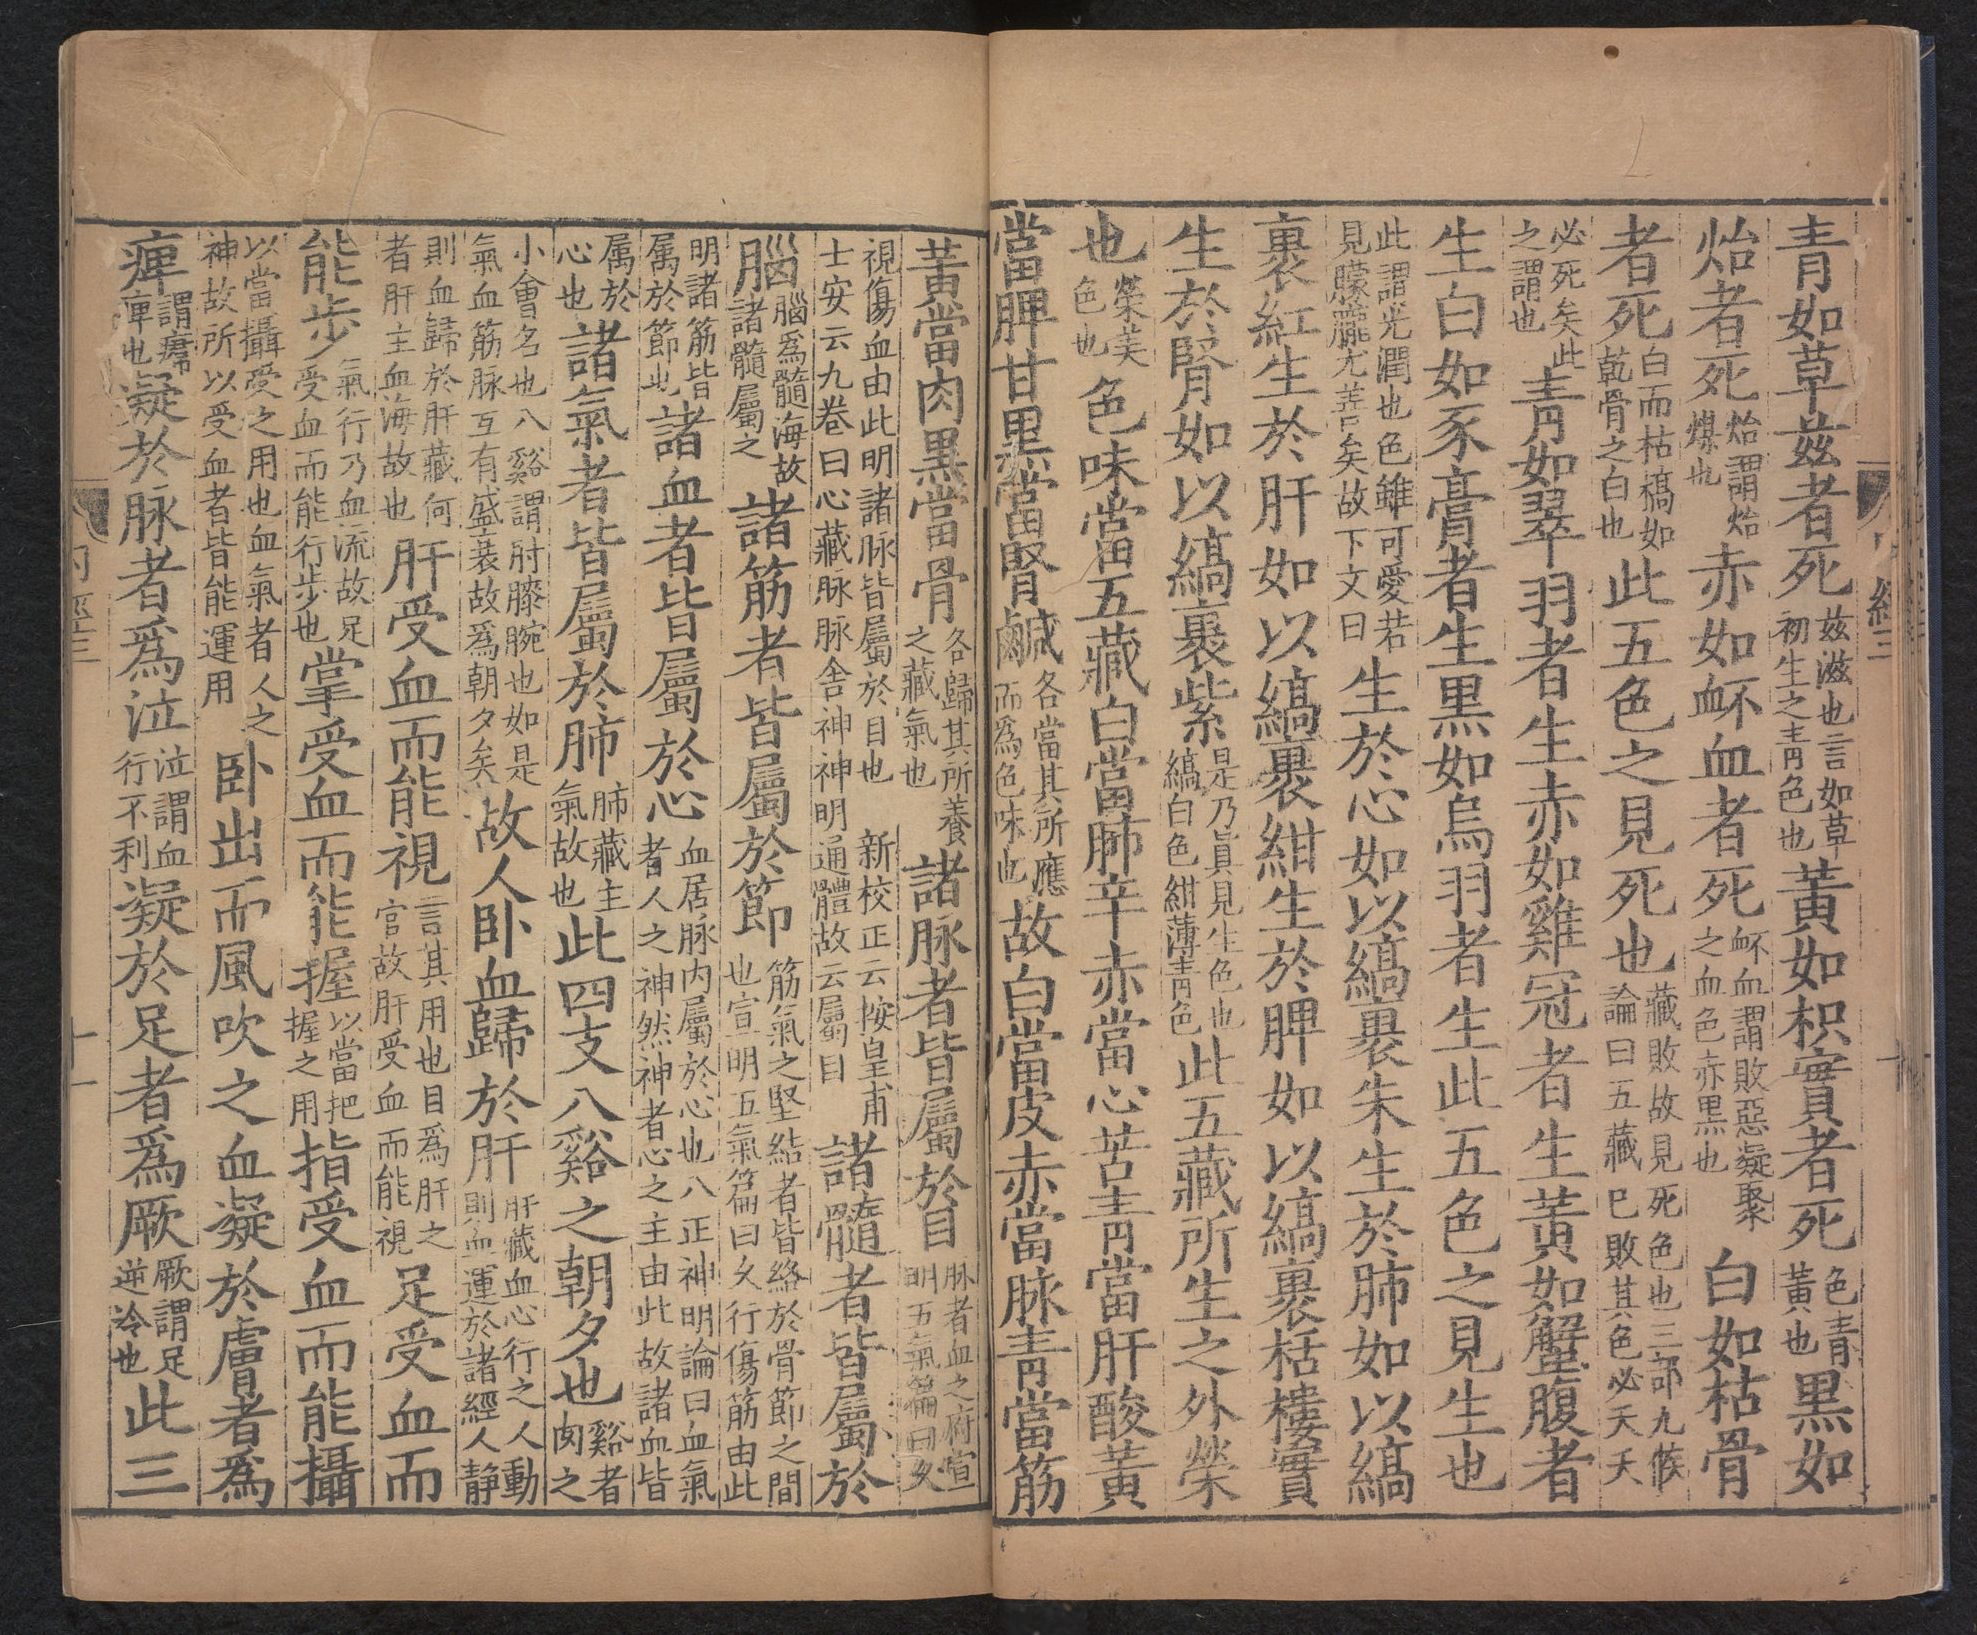 青如草茲者死茲滋也言如草初生之青色也黃如枳實者死色青黃也黑如
炲者死炲謂炲煤也赤如衃血者死衃血謂敗惡凝聚之血色赤黑也白如枯骨
者死白而枯槁如乾骨之白也此五色之見死也藏敗故見死色也三部九候論曰五藏巳敗其色必夭夭
必死矣此之謂也青如翠羽者生赤如雞冠者生黃如蟹腹者
生白如豕膏者生黑如烏羽者生此五色之見生也
此謂光潤也色雖可愛若見朦朧尤善矣故下文曰生於心如以縞裹朱生於肺如以縞
裹紅生於肝如以縞裹紺生於脾如以縞裹栝樓實
生於腎如以縞裹紫是乃眞見生色也縞白色紺薄青色此五藏所生之外榮
也榮美色也色味當五藏白當肺辛赤當心苦青當肝酸黃
當脾甘黑當腎鹹各當其所應而爲色味也故白當皮赤當脉青當筋
黃當肉黑當骨各歸其所養之藏氣也諸脉者皆屬於目脉者血之府宣明五氣篇曰久
視傷血由此明諸脉皆屬於目也新校正云按皇甫士安云九卷曰心藏脉脉舍神神明通體故云屬目諸髓者皆屬於
腦腦爲髓海故諸髓屬之諸筋者皆屬於節筋氣之堅結者皆絡於骨節之間也宣明五氣篇曰久行傷筋由此
明諸筋皆属於節也諸血者皆屬於心血居脉内屬於心也八正神明論曰血氣者人之神然神者心之主由此故諸血皆
属於心也諸氣者皆屬於肺肺藏主氣故也此四支八谿之朝夕也谿者肉之
小會名也八谿謂肘膝腕也如是氣血筋脉互有盛衰故爲朝夕矣故人卧血歸於肝肝藏血心行之人動則血運於諸經人静
則血歸於肝藏何者肝主血海故也肝受血而能視言其用也目爲肝之官故肝受血而能視足受血而
能步氣行乃血流故足受血而能行步也掌受血而能握以當把握之用指受血而能攝
以當攝受之用也血氣者人之神故所以受血者皆能運用卧出而風吹之血凝於膚者爲
痺謂㿏痺也凝於脉者爲泣泣謂血行不利凝於足者爲厥厥謂足逆冷也此三
内經三
十一